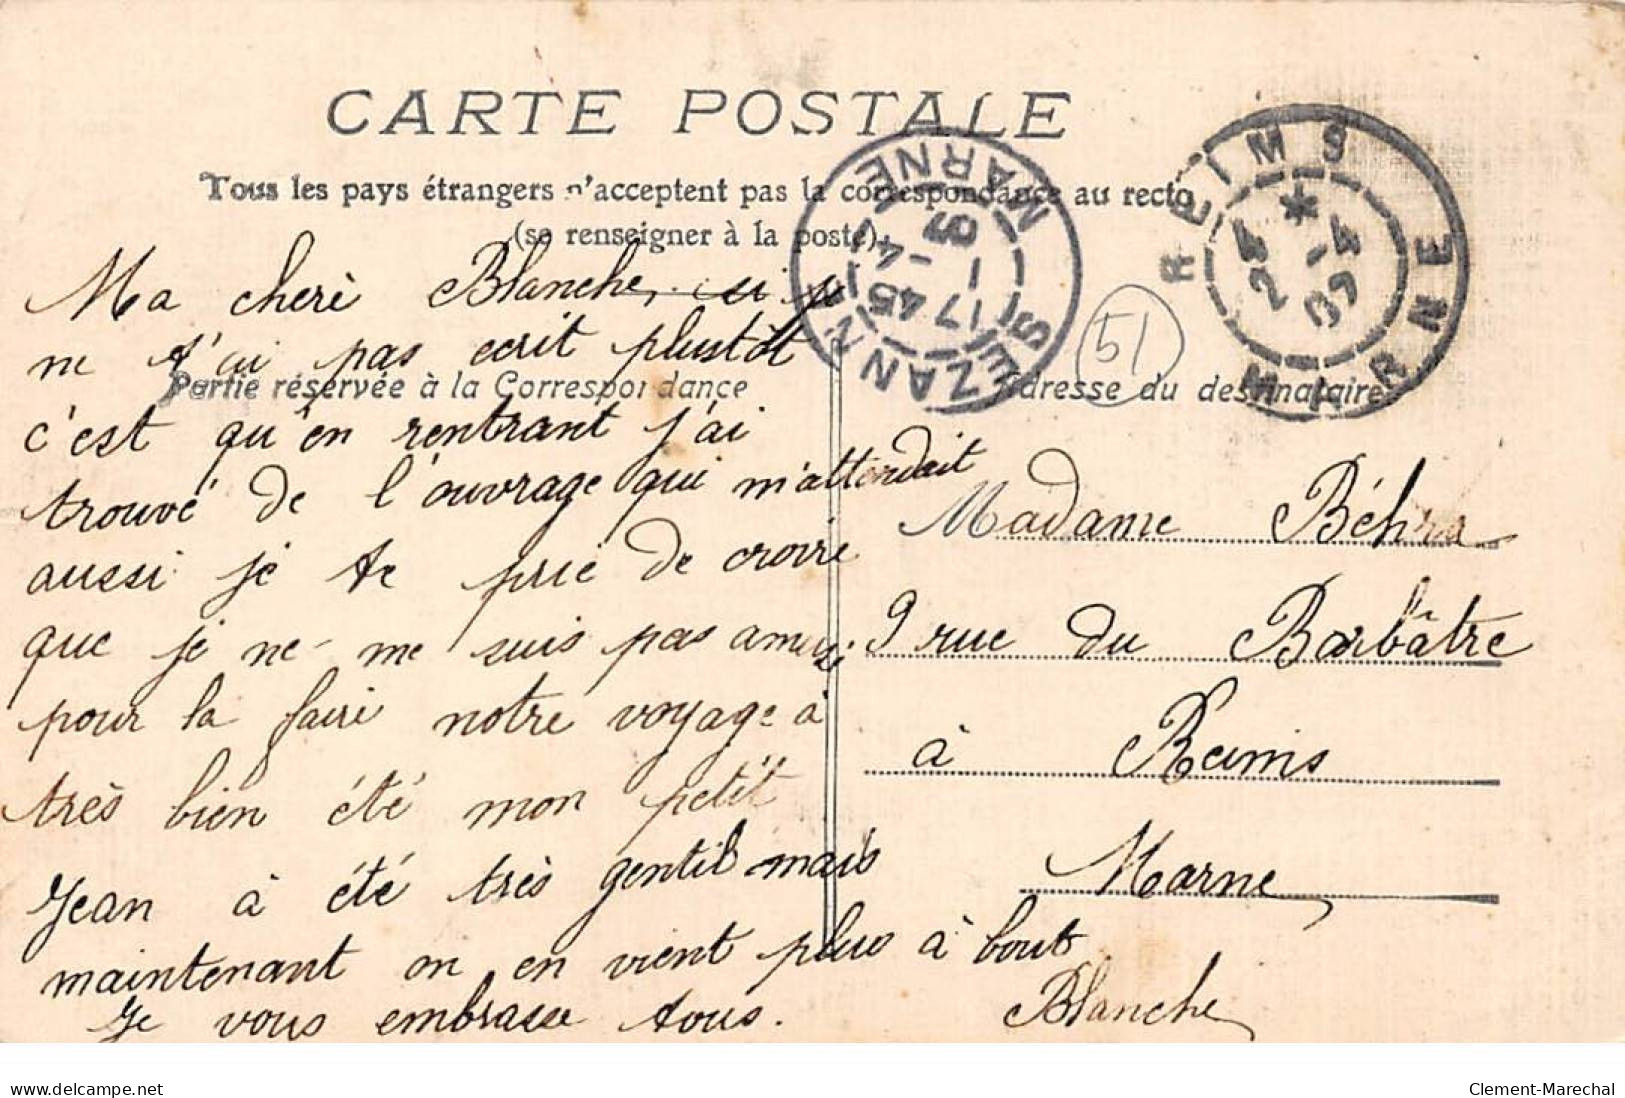 CARTE POSTALE
Tous les pays étrangers n'acceptent pas la correspondance au recto
(se renseigner à la poste)
Partie réservée à la Correspondance
Ma cherè Blanche, si je
ne t'ai pas ecrit plustôt
c'est qu'en rentrant j'ai
trouvé de l'ouvrage qui m'attendait
aussi je te prie de croire
que je ne me suis pas amusé
pour la faire notre voyage à
très bien été mon petit
Jean à été très gentil mais
maintenant on en vient plus à bout
Je vous embrasse tous.
Blanche
SEZANNE
MARNE
17 45
REIMS
MARNE
24 - 4
07
51
Adresse du destinataire
Madame Béhra
9 rue du Barbâtre
à Reims
Marne
www.delcampe.net
Clement-Marechal